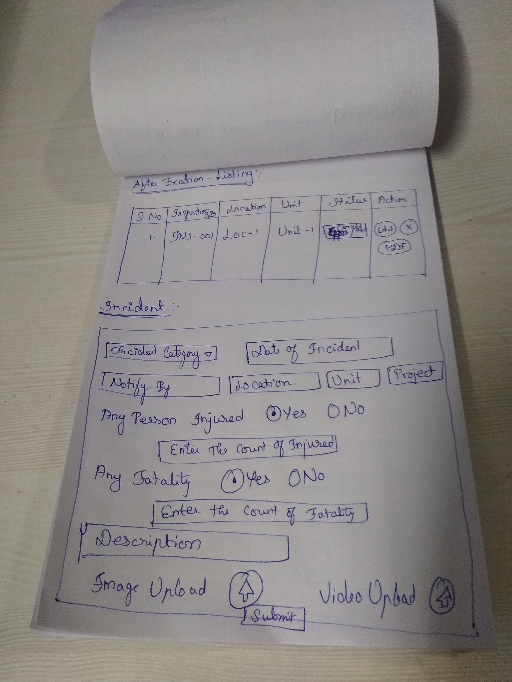 After Fixation - Listing :-
S.No Inspection Location Unit Status Action
1. INS-001 LOC-1 Unit-1 Edit X
Incident :-
Incident Category Date of Incident
Notify By Location Unit Project
Any Person Injured Yes No
Enter The Count of Injured
Any Fatality Yes No
Enter the Count of Fatality
Description
Image Upload Video Upload
Submit